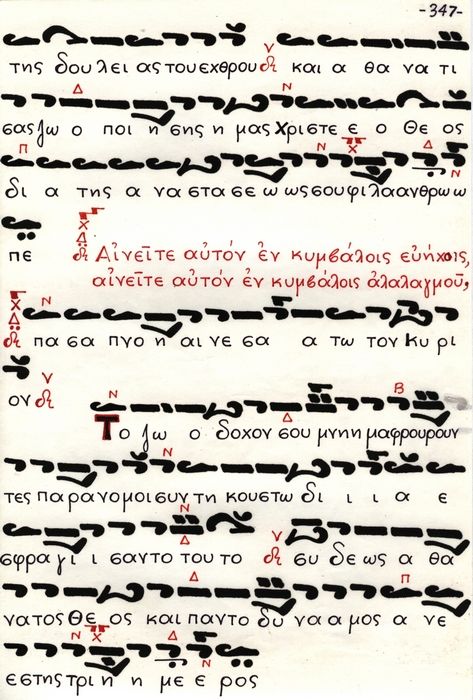 -347-
της δου λει ας του εχθρου και α θα να τι
σας ζω ο ποι η σης η μας Χριστε ε ο Θε ος
δι α της α να στα σε ω ως σου φι λα αν θρω ω
πε Αἰνεῖτε αὐτόν ἐν κυμβάλοις εὐήχοις,
αἰνεῖτε αὐτόν ἐν κυμβάλοις ἀλαλαγμοῦ,
πα σα πνο η αι νε σα α τω τον Κυ ρι
ον
Το ζω ο δο χον σου μνη η μα φρου ρουν
τες πα ρα νο μοι συν τη κου στω δι ι ι α ε
σφρα γι ι σαν το του το συ δε ως α θα
να τος Θε ος και παν το δυ να α μος α νε
ε στης τρι η η με ε ρος